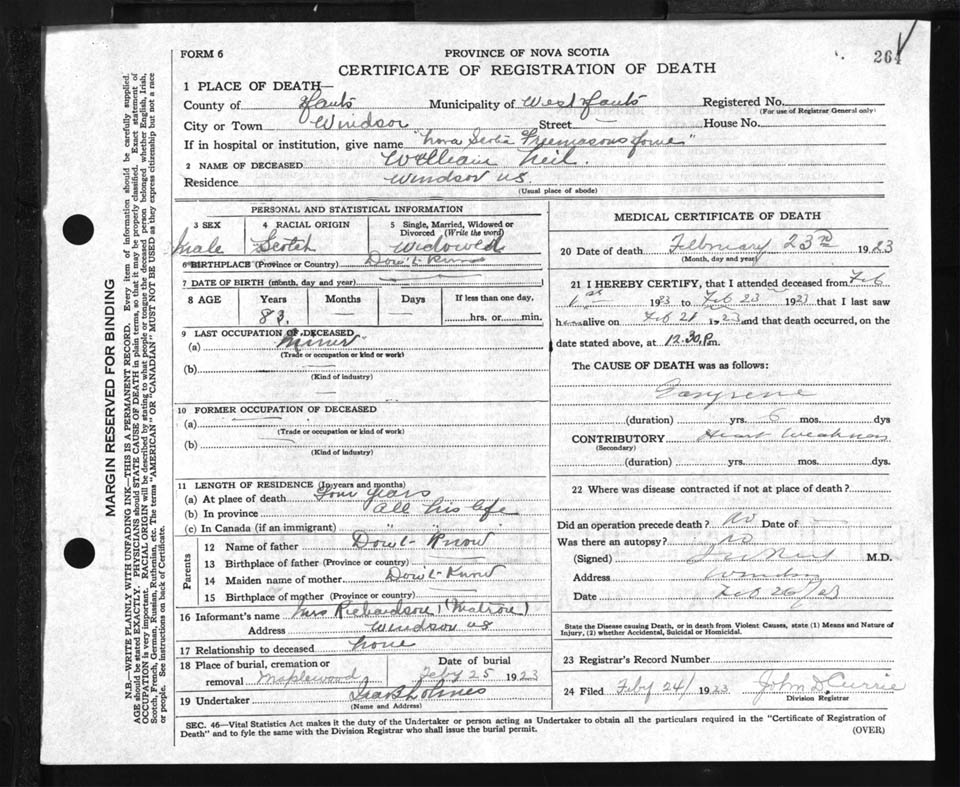 FORM 6
PROVINCE OF NOVA SCOTIA
CERTIFICATE OF REGISTRATION OF DEATH
264
MARGIN RESERVED FOR BINDING
N.B.—WRITE PLAINLY WITH UNFADING INK—THIS IS A PERMANENT RECORD. Every item of information should be carefully supplied.
AGE should be stated EXACTLY. PHYSICIANS should STATE CAUSE OF DEATH in plain terms, so that it may be properly classified. Exact statement of
OCCUPATION is very important. RACIAL ORIGIN will be described by stating to what people or tongue the deceased person belonged whether English, Irish,
Scotch, French, German, Russian, Ruthenian, etc. The terms "AMERICAN" or "CANADIAN" MUST NOT BE USED as they express citizenship but not a race
or people. See instructions on back of Certificate.
1 PLACE OF DEATH—
County of Hants Municipality of West Hants Registered No.
(For use of Registrar General only)
City or Town Windsor Street — House No.
If in hospital or institution, give name "Nova Scotia Freemasons Home"
2 NAME OF DECEASED William Neil.
Residence Windsor NS.
(Usual place of abode)
PERSONAL AND STATISTICAL INFORMATION
3 SEX 4 RACIAL ORIGIN 5 Single, Married, Widowed or
Divorced (Write the word)
Male Scotch Widowed
6 BIRTHPLACE (Province or Country) Don't Know
7 DATE OF BIRTH (month, day and year) —
8 AGE Years Months Days If less than one day,
83. — — hrs. or min.
9 LAST OCCUPATION OF DECEASED
(a) "Miner"
(Trade or occupation or kind or work)
(b)
(Kind of industry)
—
10 FORMER OCCUPATION OF DECEASED
(a) —
(Trade or occupation or kind of work)
(b) —
(Kind of industry)
11 LENGTH OF RESIDENCE (In years and months)
(a) At place of death Four Years
(b) In province all his life
(c) In Canada (if an immigrant) " "
Parents
12 Name of father Don't Know
13 Birthplace of father (Province or country) —
14 Maiden name of mother Don't Know
15 Birthplace of mother (Province or country) —
16 Informant's name Mrs Richardson, (Matron)
Address Windsor NS
17 Relationship to deceased None
18 Place of burial, cremation or Date of burial
removal Maplewood Feby 25 1923
19 Undertaker
(Name and Address)
MEDICAL CERTIFICATE OF DEATH
20 Date of death February 23rd 1923
(Month, day and year)
21 I HEREBY CERTIFY, that I attended deceased from Feb
1st 1923 to Feb 23 1923 that I last saw
him alive on Feb 21 1923 and that death occurred, on the
date stated above, at 12.30 p.m.
The CAUSE OF DEATH was as follows:
Gangrene
(duration) yrs. 6 mos. dys
CONTRIBUTORY Heart Weakness
(Secondary)
(duration) yrs. mos. dys.
22 Where was disease contracted if not at place of death?
Did an operation precede death? no Date of
Was there an autopsy? no
(Signed) M.D.
Address Windsor
Date Feb 26/23
State the Disease causing Death, or in death from Violent Causes, state (1) Means and Nature of
Injury, (2) whether Accidental, Suicidal or Homicidal.
23 Registrar's Record Number
24 Filed Feby 24/ 1923 John D. Currie
Division Registrar
SEC. 46—Vital Statistics Act makes it the duty of the Undertaker or person acting as Undertaker to obtain all the particulars required in the "Certificate of Registration of
Death" and to fyle the same with the Division Registrar who shall issue the burial permit.
(OVER)